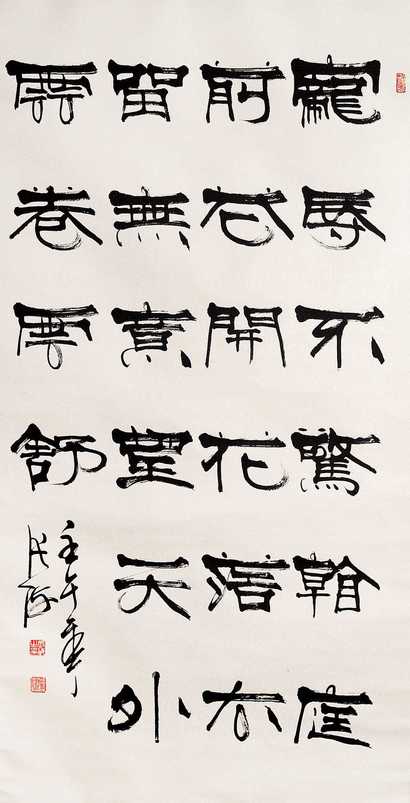 寵辱不驚看庭
前花開花落去
留無意望天外
雲卷雲舒
壬午年